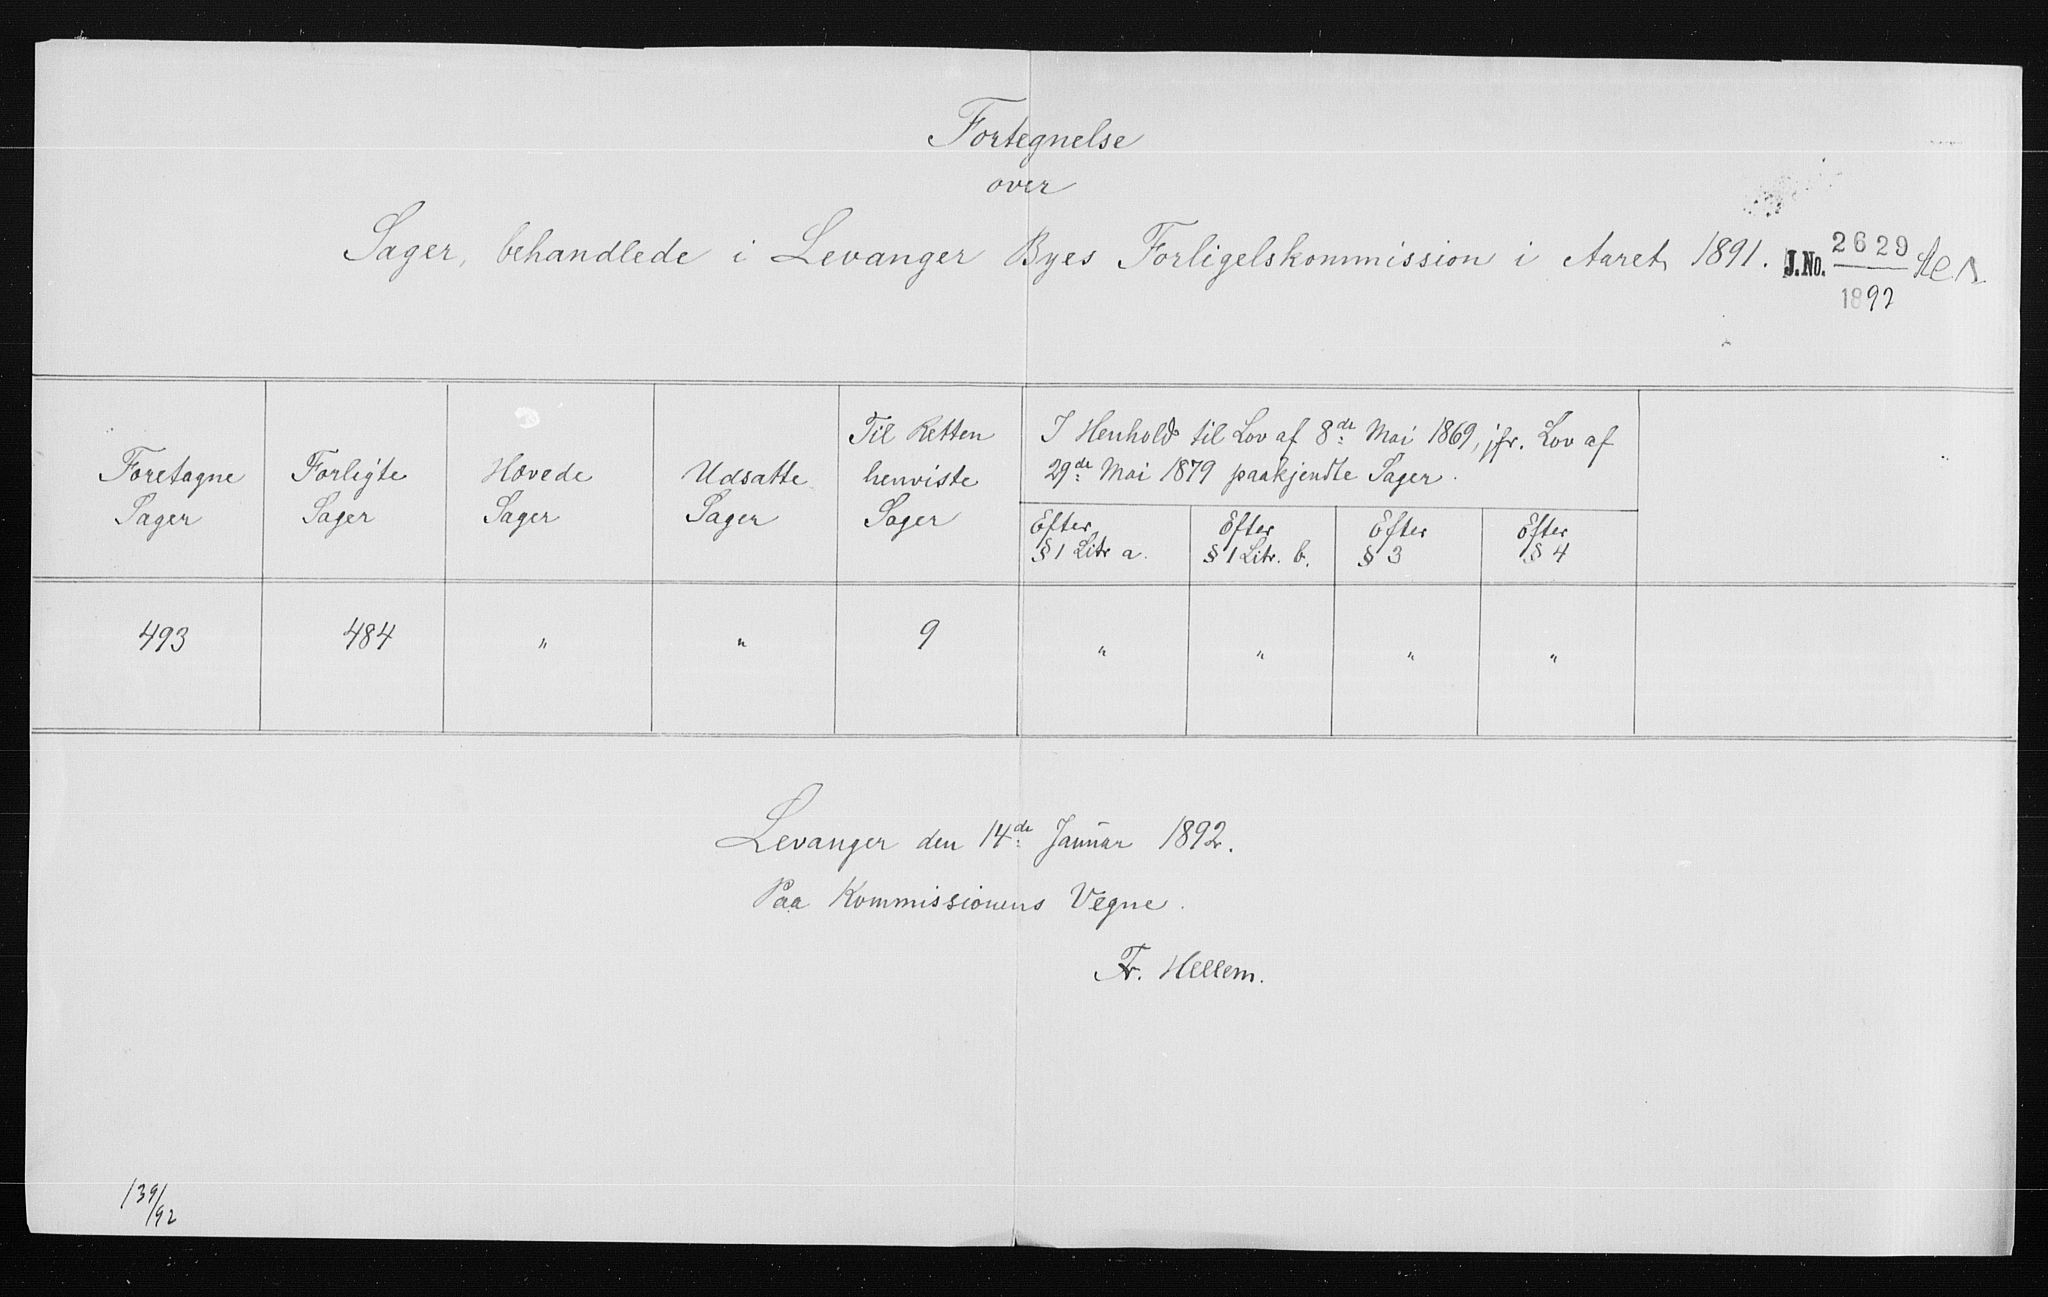 Fortegnelse
over
Sager, behandlede i Levanger Byes Forligelskommission i Aaret 1891.
J.No. 2629
1892
Foretagne
Sager
Forligte
Sager
Hævede
Sager
Udsatte
Sager
Til Retten
henviste
Sager
I Henhold til Lov af 8de Mai 1869, jfr. Lov af
29de Mai 1879 paakjendte Sager.
Efter
§ 1 Litr a.
Efter
§ 1 Litr. b.
Efter
§ 3
Efter
§ 4
493 484 " " 9 " " " "
Levanger den 14de Januar 1892.
Paa Kommissionens Vegne.
Fr. Hellem.
139/92